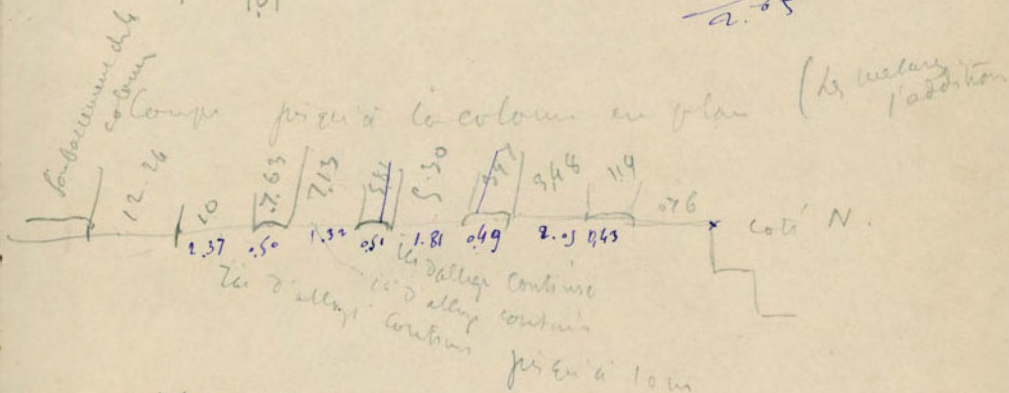 2.05
Soubassement de la
colonne
Coupe jusqu'à la colonne en plan (les mesures
s'additionn
12.24 10 7.63 7.13 5.81 5.30 3.48 1.19 0.76 coté N.
2.37 0.50 1.32 0.51 1.81 0.49 2.05 0.43
ici d'allège continue
ici d'allège continue
ici d'allège continue jusqu'à 10m